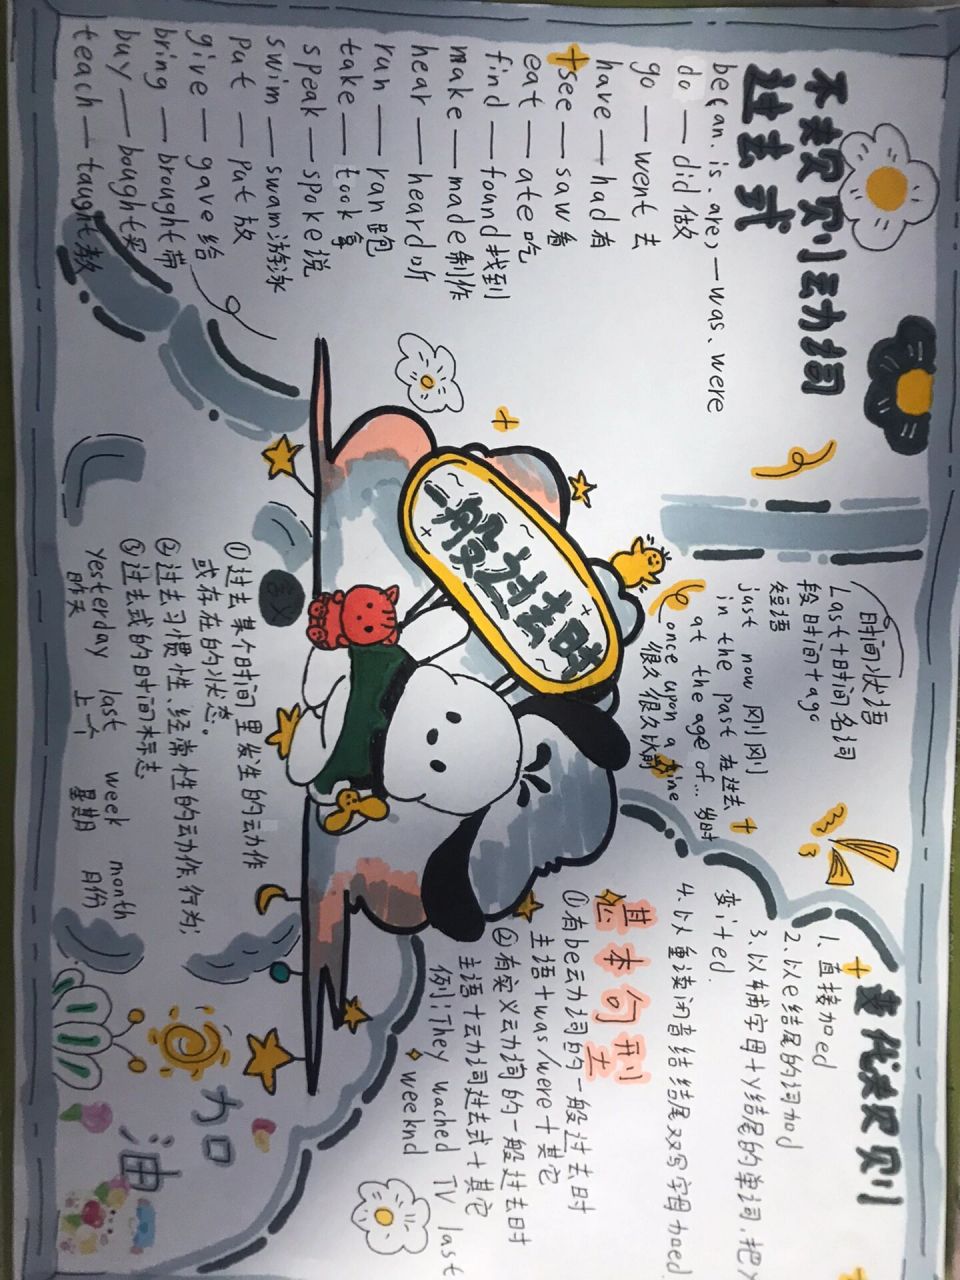 不规则动词
过去式
be(an.is.are)—was、were
do—did 做
go—went 去
have—had 有
see—saw 看
eat—ate 吃
find—found 找到
make—made 制作
hear—heard 听
run—ran 跑
take—took 拿
speak—spoke 说
swim—swam 游泳
put—put 放
give—gave 给
bring—brought 带
buy—bought 买
teach—taught 教
一般过去时
时间状语
Last+时间名词
段时间+ago
短语
just now 刚刚
in the past 在过去
at the age of... 岁时
once upon a time
很久很久以前
规则
1.直接加ed
2.以e结尾的词加d
3.以辅字母+y结尾的单词,把y
变ited.
4.以重读闭音结结尾双写字母加ed.
基本句型
①有be动词的一般过去时
主语+was/were+其它
②有实义动词的一般过去时
主语+动词过去式+其它
例:They wached TV last
weeknd
含义
①过去某个时间里发生的动作
或存在的状态。
②过去习惯性、经常性的动作行为;
③过去式的时间标志
yesterday last week month
昨天 上一个 星期 月份
加油